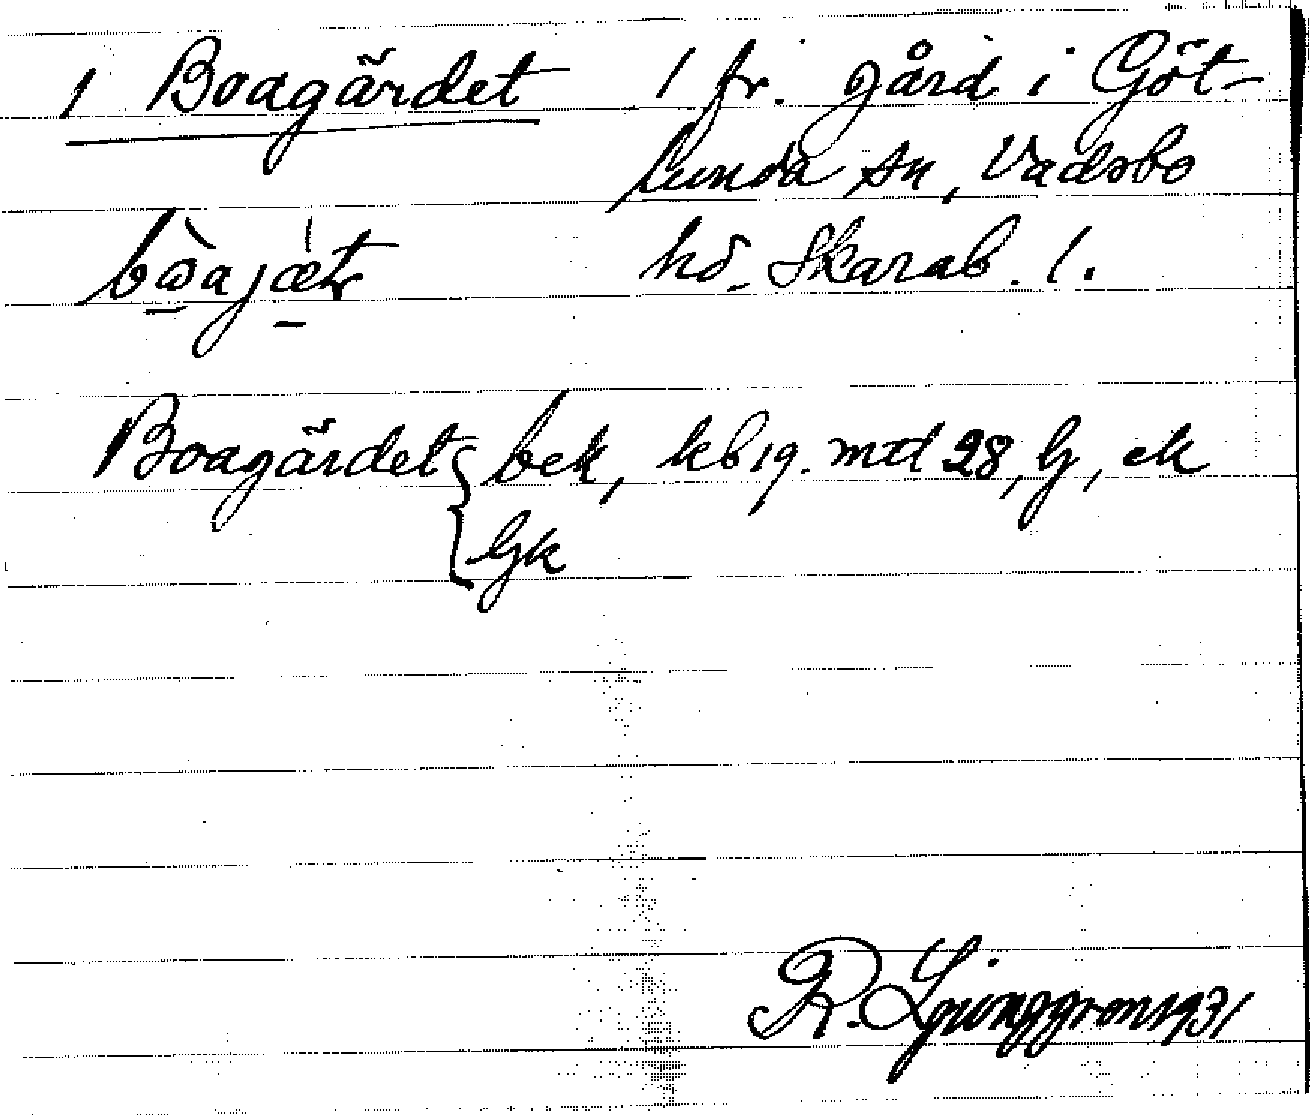 1 Boagärdet 1 fr. gård i Göt-
lunda sn, Vadsbo
hd. Skarab. l.
Boagärdet { bek, kb 19. mtl 28, G, ek
Gk
R. Ljunggren 1931